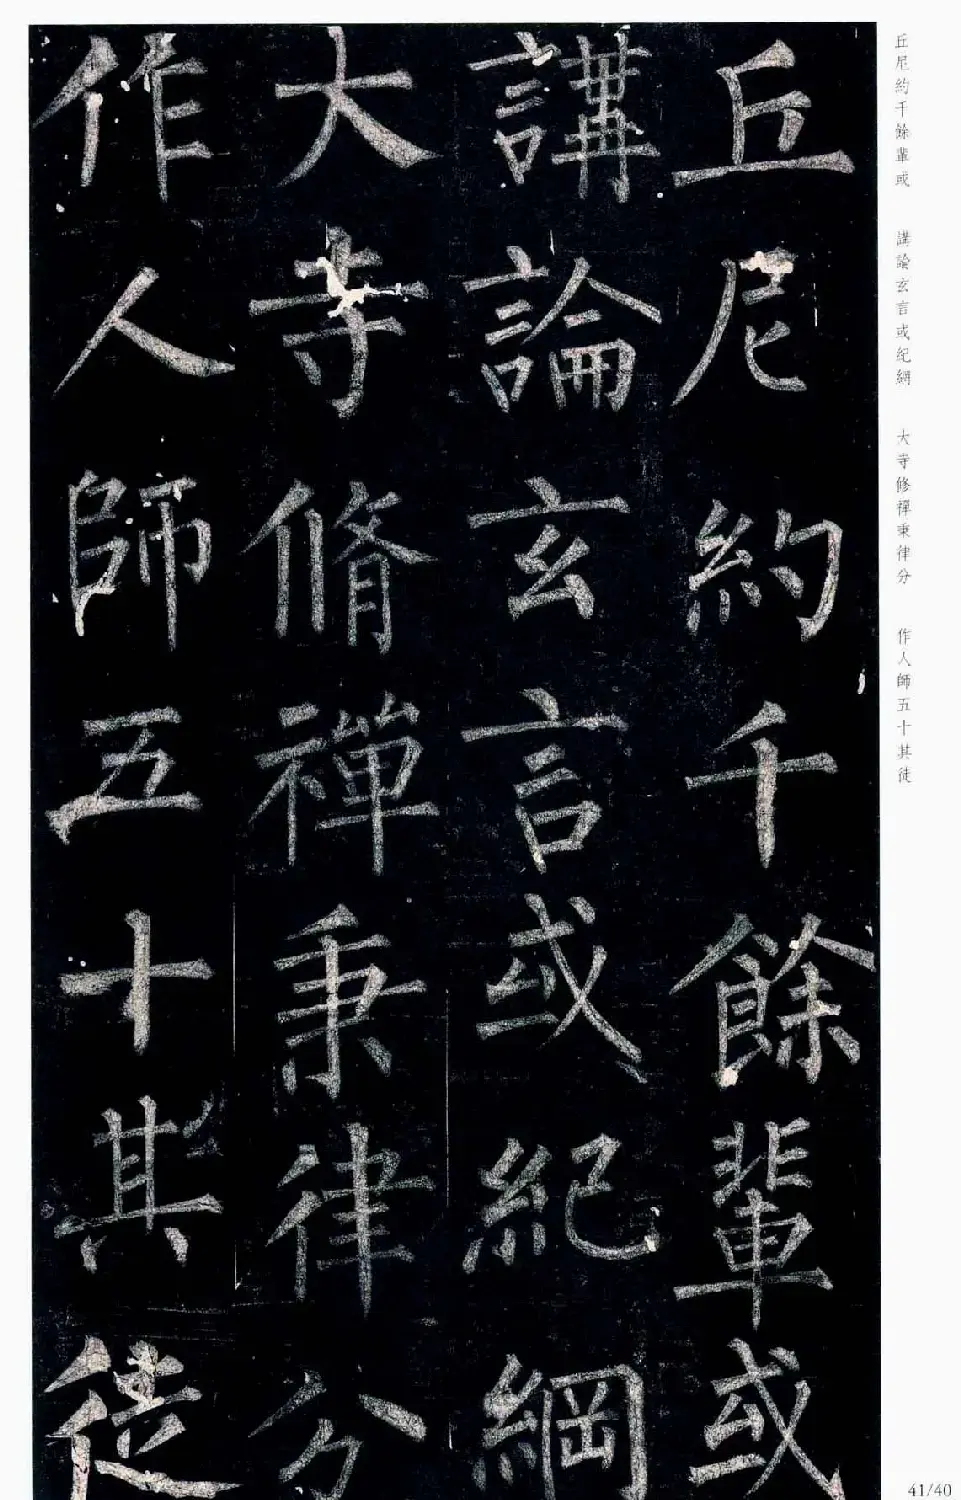 丘尼約千餘輩或
講論玄言或紀綱
大寺脩禪秉律分
作人師五十其徒
丘尼約千餘輩或 講論玄言或紀綱 大寺修禪秉律分 作人師五十其徒
41/40